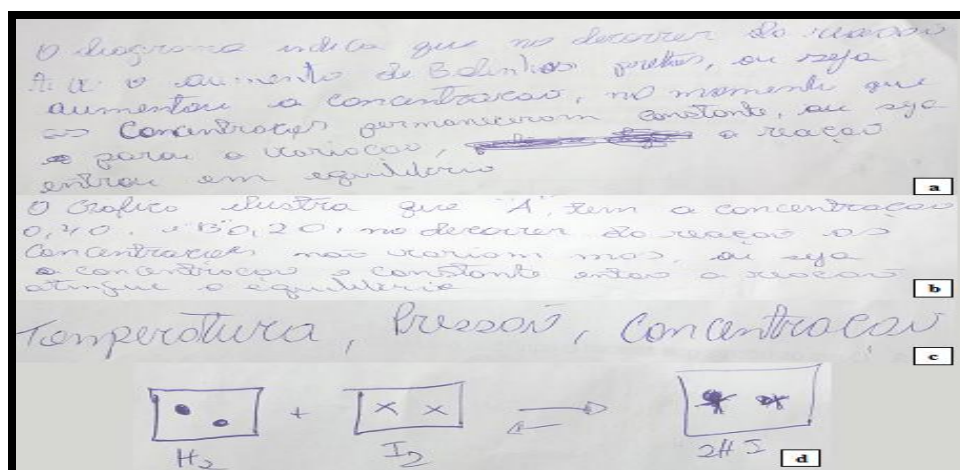 O diagrama indica que no decorrer da reação
o aumento de Bolinhas pretas, ou seja
aumentou a concentração, no momento que
as Concentrações permaneceram constante, ou seja
parou a variação, a reação
entrou em equilíbrio
a
O Grafico ilustra que "A", tem a concentração
0,40. e "B" 0,20, no decorrer da reação as
Concentrações não variam mas, ou seja
a concentração e constante então a reação
atingiu o equilíbrio
b
Temperatura, Pressão, Concentração
c
+
H2 I2 2H I
d